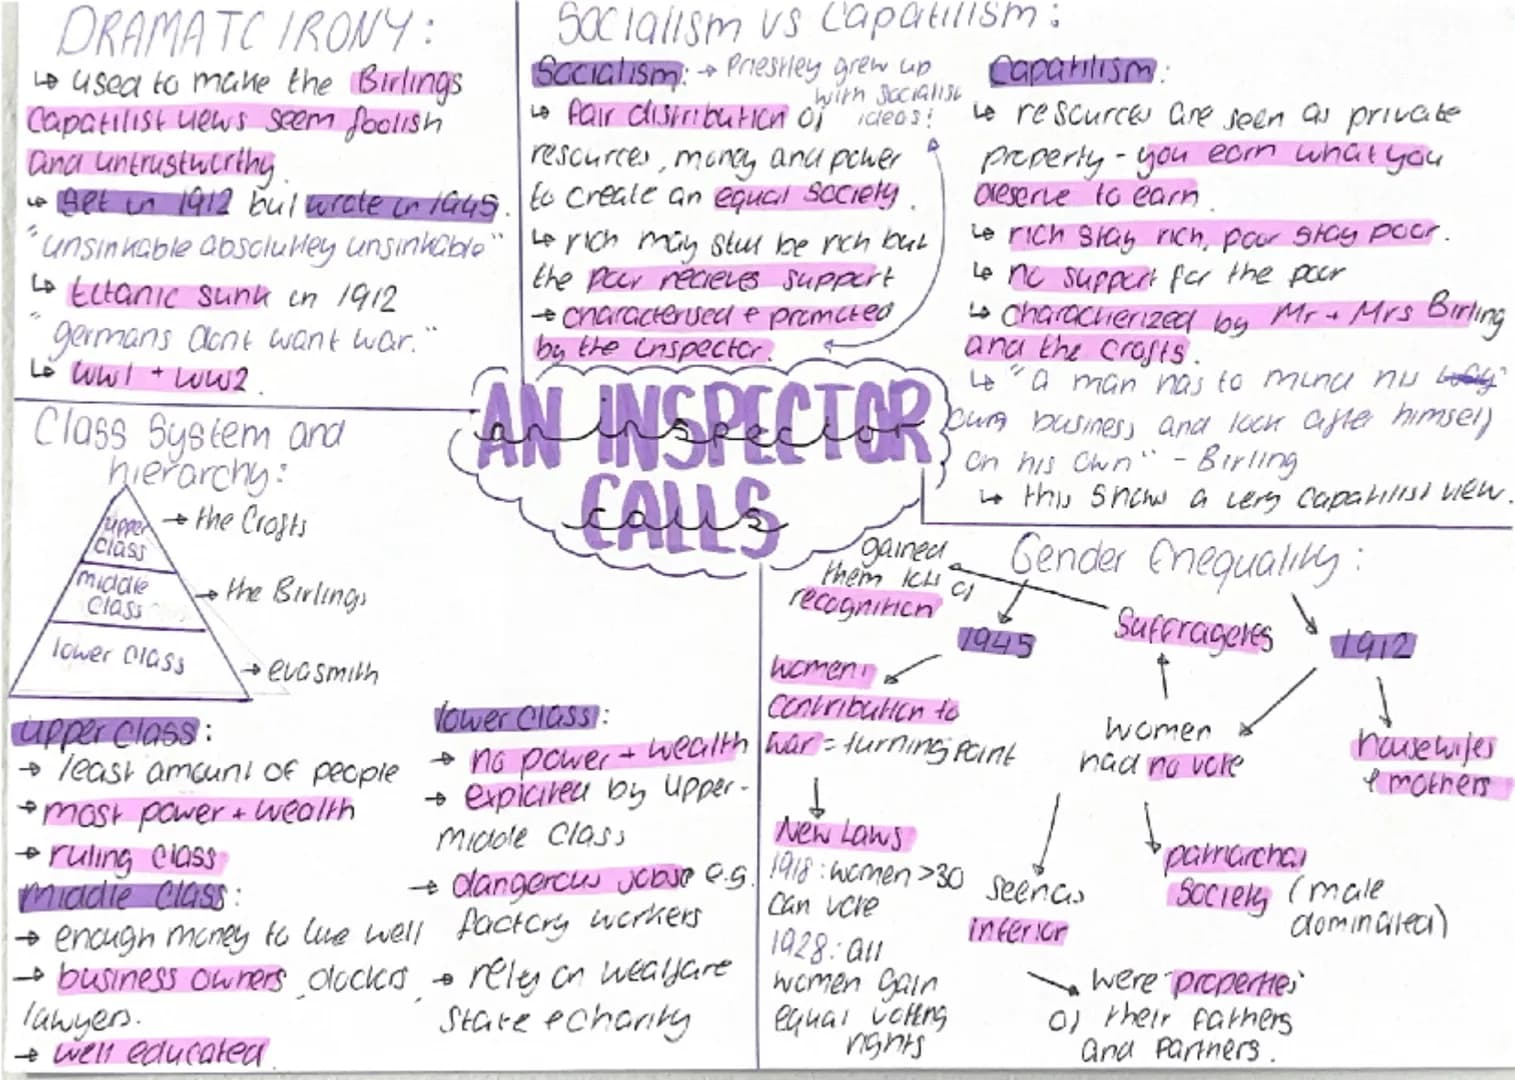 DRAMATC IRONY:
↳ used to make the Birlings
Capatilist views seem foolish
and untrustworthy.
↳ Set in 1912 but wrote in 1945.
"unsinkable absolutley unsinkable"
↳ titanic sunk in 1912
"germans dont want war."
↳ WW1 + WW2.
Socialism vs Capatilism:
Socialism: → Priestley grew up
with socialist
ideas!
↳ fair distribution of
resources, money and power
to create an equal society.
↳ rich may still be rich but
the poor recieves support
→ characterised + promoted
by the inspector.
Capatilism:
↳ resources are seen as private
property - you earn what you
deserve to earn.
↳ rich stay rich, poor stay poor.
↳ no support for the poor
↳ characterized by Mr + Mrs Birling
and the Crofts.
↳ "a man has to mind his
own business and look after himself
on his own" - Birling
↳ this show a very capatilist view.
AN INSPECTOR
an inspector
CALLS
calls
Class System and
hierarchy:
upper
class
→ the Crofts
middle
class
→ the Birlings
lower class
→ eva smith
upper class:
→ least amount of people
→ most power + wealth
→ ruling class
Middle class:
→ enough money to live well
→ business owners, doctors,
lawyers.
→ well educated.
lower class:
→ no power + wealth
→ exploited by upper-
middle class
→ dangerous jobs e.g.
factory workers
→ rely on wealfare
state + charity
Gender Inequality:
gained
them lots of
recognition
1945
Suffragetes
1912
womens
contribution to
war = turning point
New Laws
1918: women >30
can vote
1928: all
women gain
equal voting
rights
women
had no vote
housewifes
+ mothers
seen as
inferior
patriarchal
society (male
dominated)
were "properties"
of their fathers
and partners.